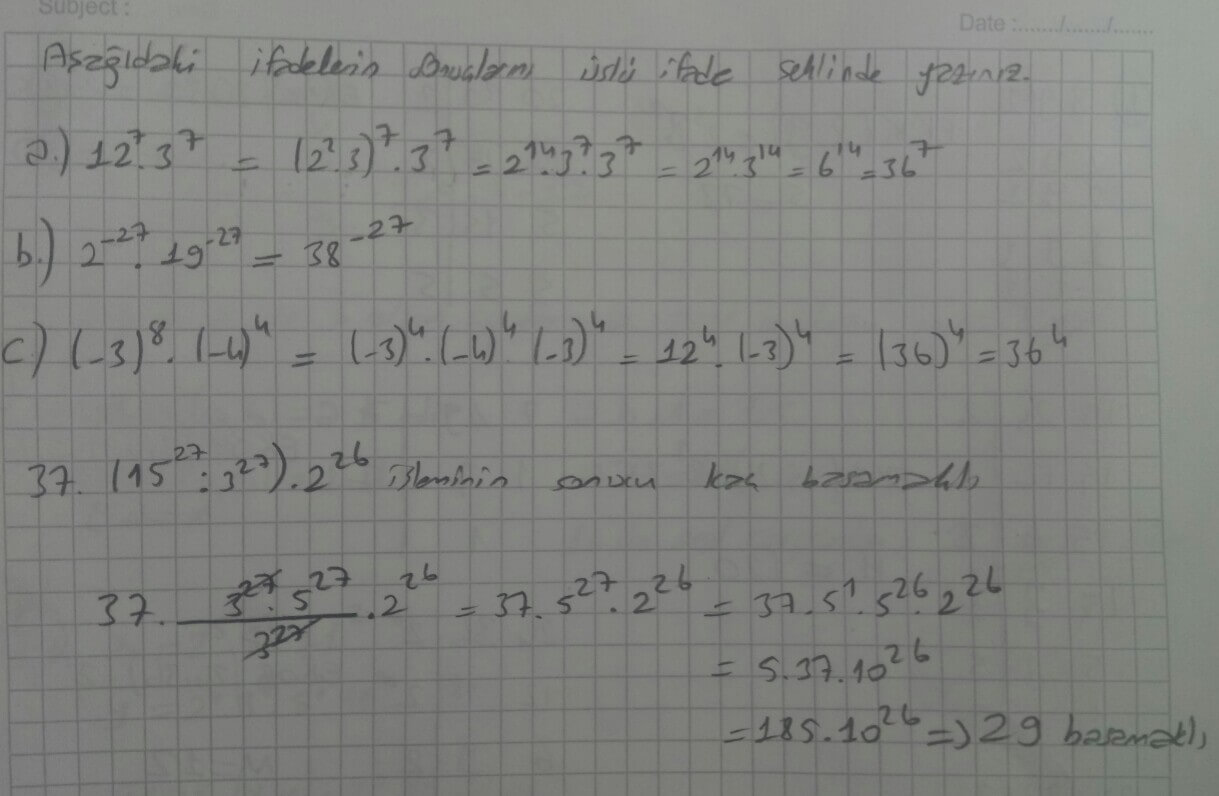 Subject :
Date :......./......./.......
Aşağıdaki ifadelerin sonuçlarını üslü ifade şeklinde yazınız.
a.) 12⁷.3⁷ = (2².3)⁷.3⁷ = 2¹⁴.3⁷.3⁷ = 2¹⁴.3¹⁴ = 6¹⁴ = 36⁷
b.) 2⁻²⁷.19⁻²⁷ = 38⁻²⁷
c.) (-3)⁸.(-4)⁴ = (-3)⁴.(-4)⁴.(-3)⁴ = 12⁴.(-3)⁴ = (36)⁴ = 36⁴
37.(15²⁷:3²⁷).2²⁶ işleminin sonucu kaç basamaklı
37. 3²⁷.5²⁷ / 3²⁷ .2²⁶ = 37.5²⁷.2²⁶ = 37.5¹.5²⁶.2²⁶
= 5.37.10²⁶
= 185.10²⁶ => 29 basamaklı